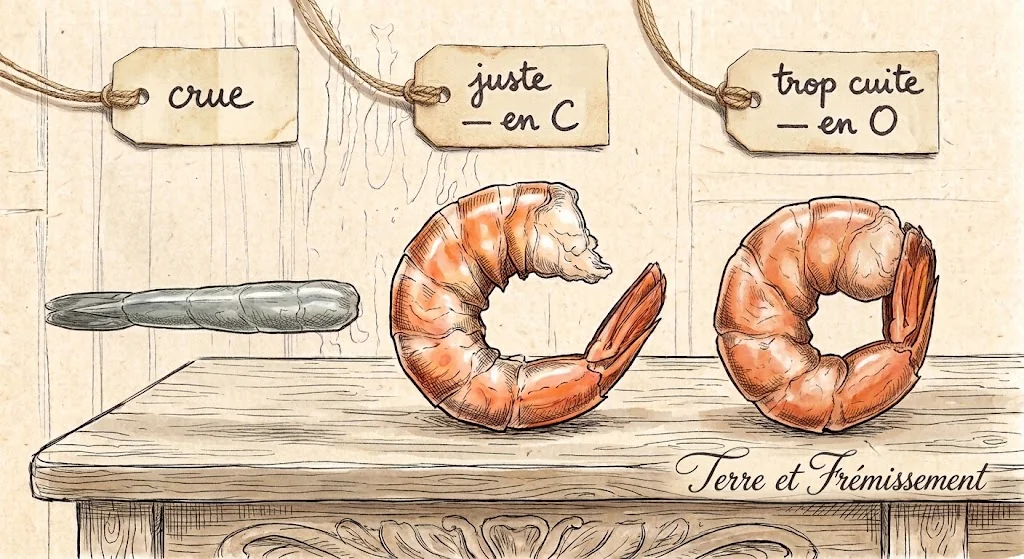 crue
juste
— en C
trop cuite
— en O
Terre et Frémissement